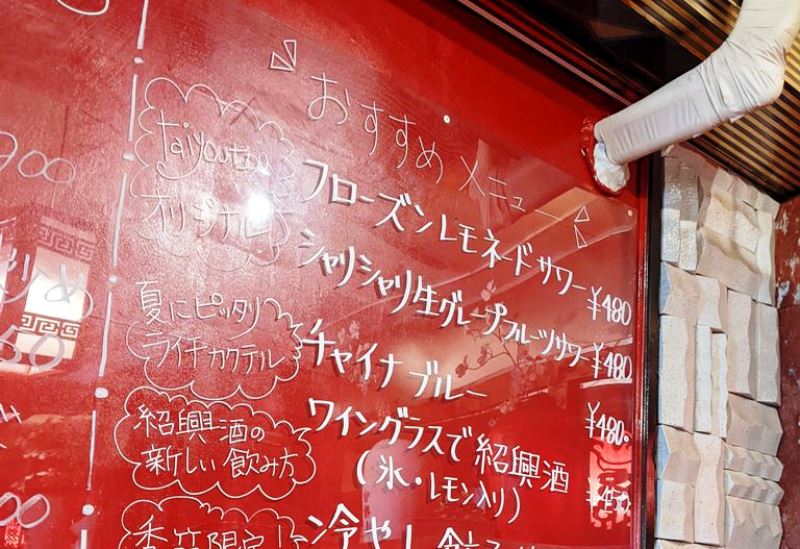 おすすめメニュー
taiyoutou
オリジナル
フローズンレモネードサワー ¥480
シャリシャリ生グレープフルーツサワー ¥480
夏にピッタリ
ライチカクテル
チャイナブルー ¥480.
紹興酒の
新しい飲み方
ワイングラスで紹興酒 ¥450
(氷・レモン入り)
香箱限定
冷やし
900
炒め
50
00